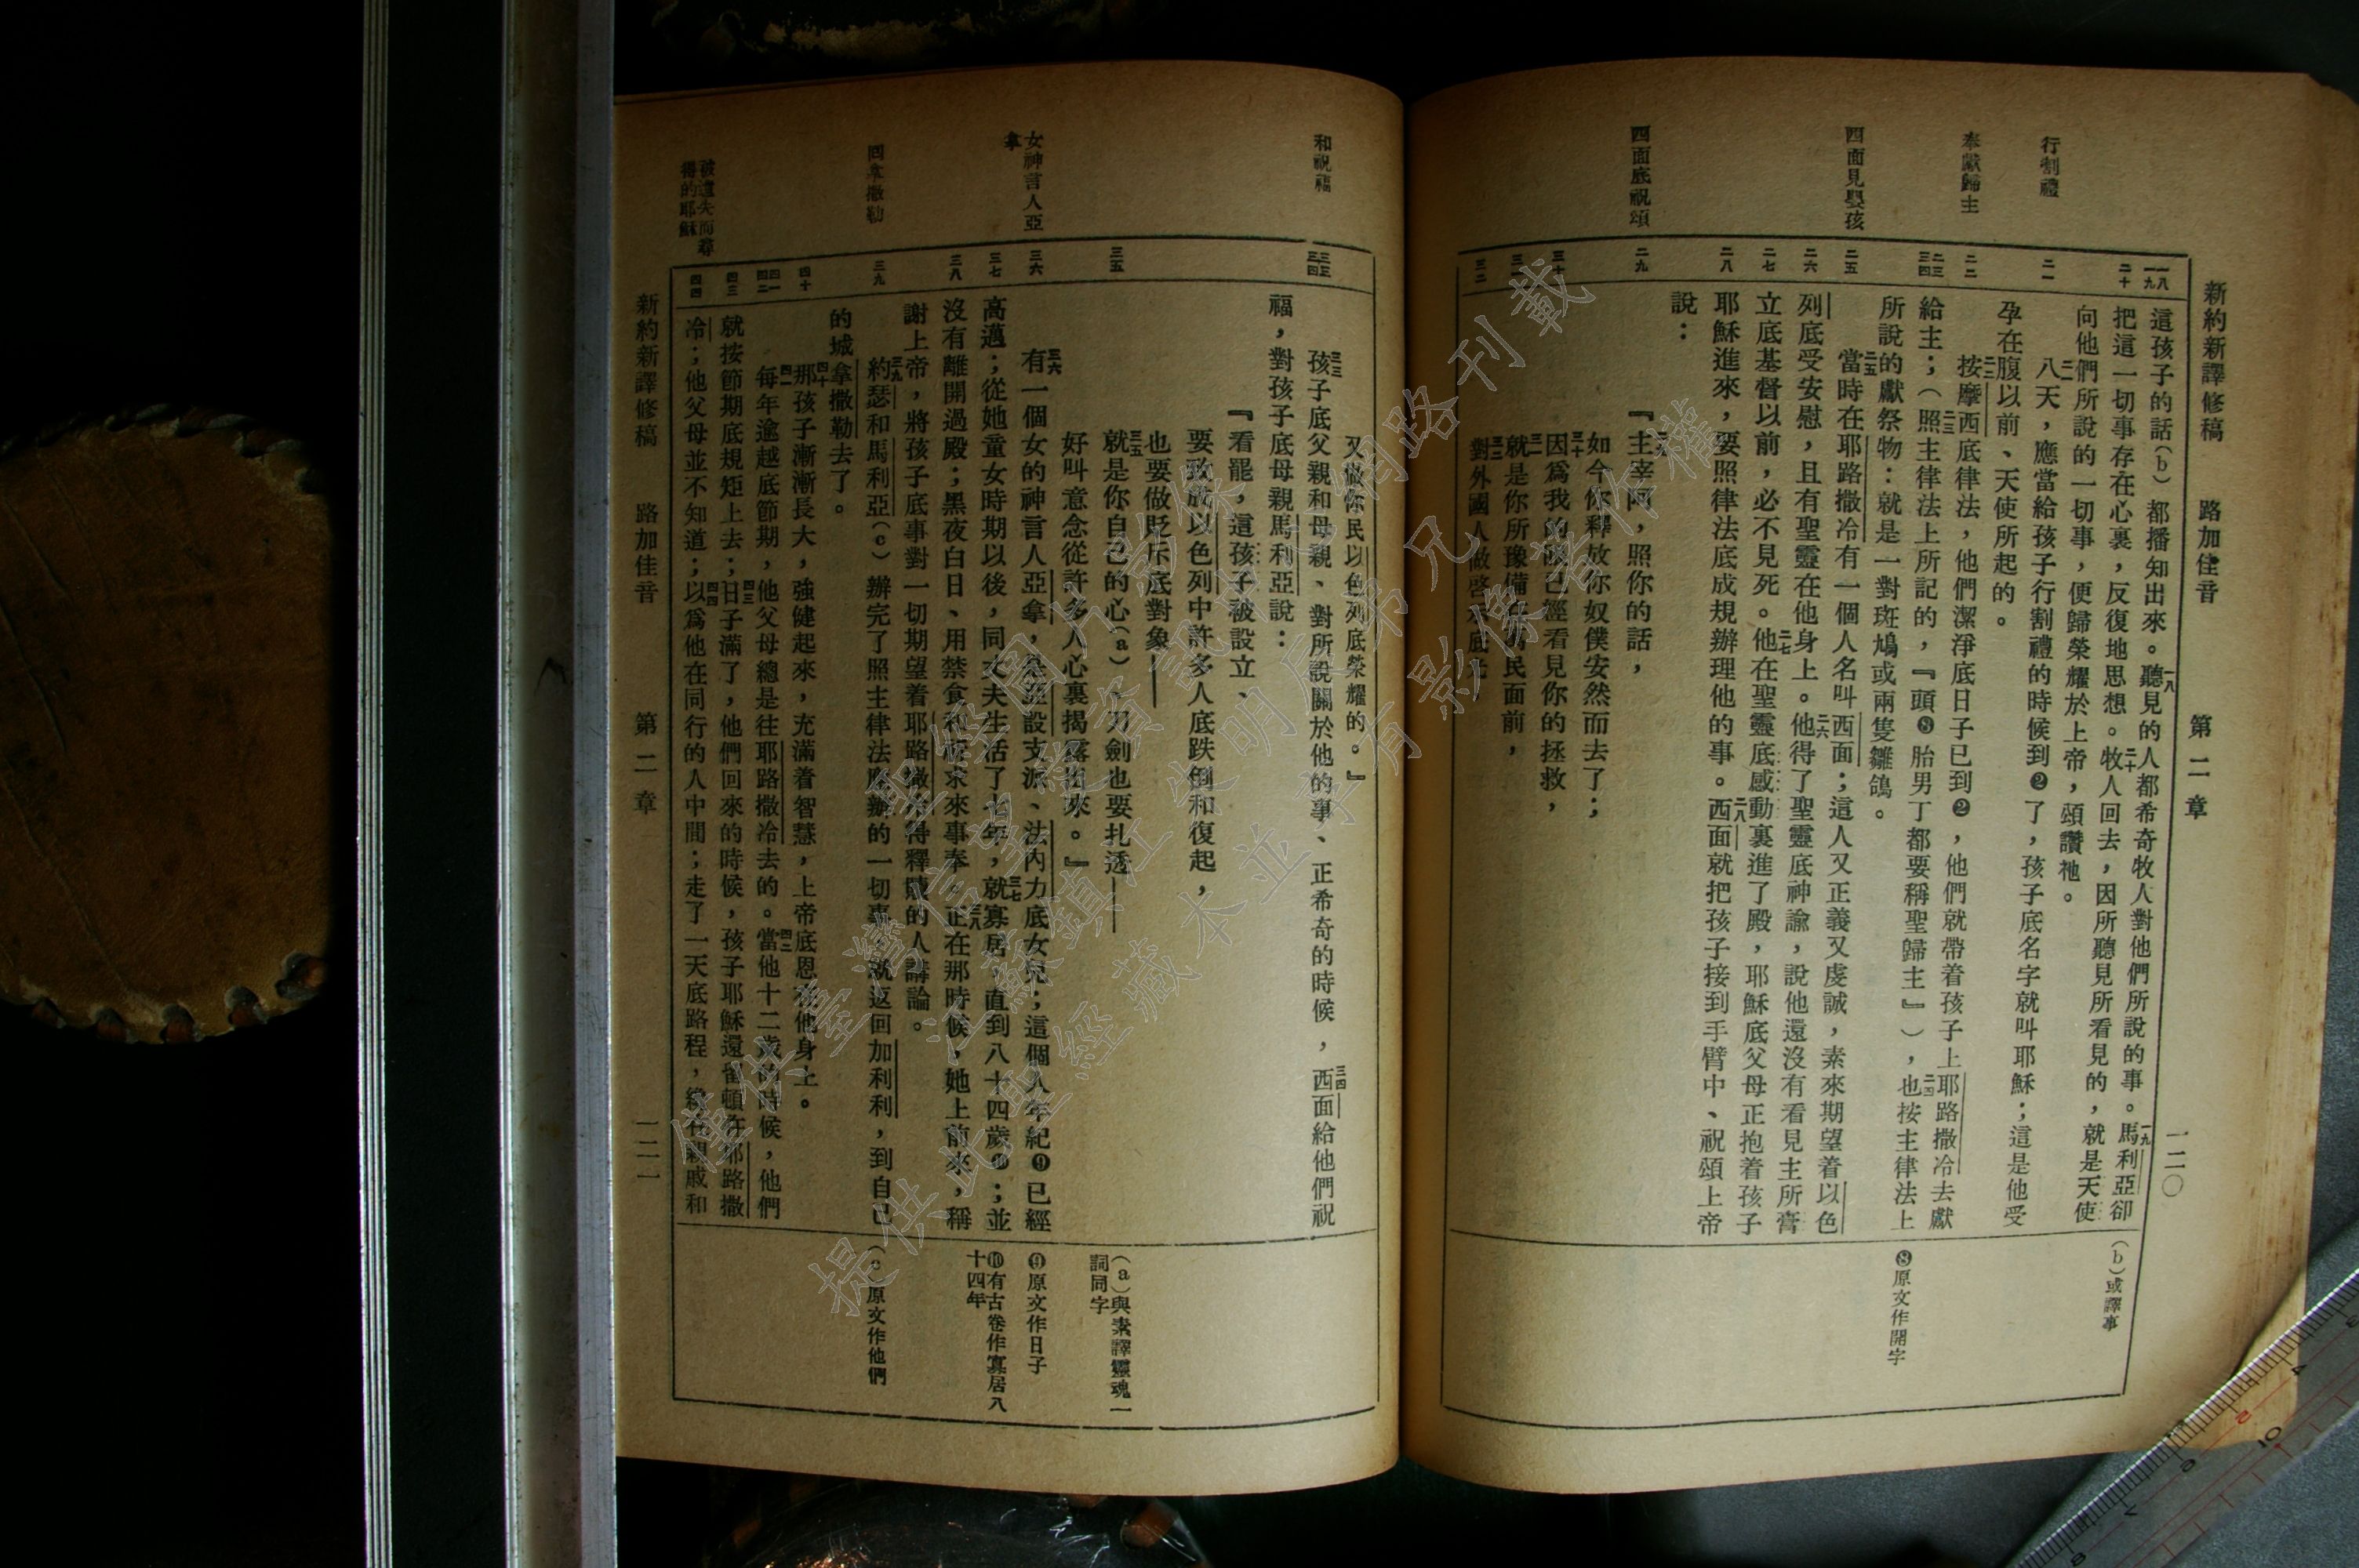 新約新譯修稿　路加佳音　第二章　一二〇
行割禮
奉獻歸主
西面見嬰孩
西面底祝頌
一八
一九
二十
二一
二二
二三
二四
二五
二六
二七
二八
二九
三十
三一
三二
這孩子的話(b)都播知出來。一八聽見的人都希奇牧人對他們所說的事。一九馬利亞卻
把這一切事存在心裏，反復地思想。二十牧人回去，因所聽見所看見的，就是天使
向他們所說的一切事，便歸榮耀於上帝，頌讚祂。
二一八天，應當給孩子行割禮的時候到❷了，孩子底名字就叫耶穌；這是他受
孕在腹以前、天使所起的。
二二按摩西底律法，他們潔淨底日子已到❷，他們就帶着孩子上耶路撒冷去獻
給主；二三（照主律法上所記的，『頭❽胎男丁都要稱聖歸主』），二四也按主律法上
所說的獻祭物：就是一對斑鳩或兩隻雛鴿。
二五當時在耶路撒冷有一個人名叫西面；這人又正義又虔誠，素來期望着以色
列底受安慰，且有聖靈在他身上。二六他得了聖靈底神諭，說他還沒有看見主所膏
立底基督以前，必不見死。二七他在聖靈底感動裏進了殿，耶穌底父母正抱着孩子
耶穌進來，要照律法底成規辦理他的事。二八西面就把孩子接到手臂中、祝頌上帝
說：
『主宰阿，照你的話，
如今你釋放你奴僕安然而去了；
三十因爲我的眼已經看見你的拯救，
三一就是你所豫備在萬民面前，
三二對外國人做啓示底光
(b)或譯事
❽原文作開字
和祝福
女神言人亞拿
回拿撒勒
被遺失而尋得的耶穌
三三
三四
三五
三六
三七
三八
三九
四十
四一
四二
四三
四四
又做你民以色列底榮耀的。』
三三孩子底父親和母親、對所說關於他的事、正希奇的時候，三四西面給他們祝
福，對孩子底母親馬利亞說：
『看罷，這孩子被設立、
要致成以色列中許多人底跌倒和復起，
也要做貶斥底對象——
三五就是你自己的心(a)、刀劍也要扎透——
好叫意念從許多人心裏揭露出來。』
三六有一個女的神言人亞拿，是亞設支派、法內力底女兒；這個人年紀❾已經
高邁；從她童女時期以後，同丈夫生活了七年，三七就寡居，直到八十四歲❿；並
沒有離開過殿；黑夜白日、用禁食和祈求來事奉。三八正在那時候，她上前來，稱
謝上帝，將孩子底事對一切期望着耶路撒冷得釋贖的人講論。
三九約瑟和馬利亞(c)辦完了照主律法應辦的一切事，就返回加利利，到自己
的城拿撒勒去了。
四十那孩子漸漸長大，強健起來，充滿着智慧，上帝底恩在他身上。
四一每年逾越底節期，他父母總是往耶路撒冷去的。四二當他十二歲的時候，他們
就按節期底規矩上去；四三日子滿了，他們回來的時候，孩子耶穌還留頓在耶路撒
冷；他父母並不知道；四四以爲他在同行的人中間；走了一天底路程，纔在親戚和
(a)與素譯靈魂一詞同字
❾原文作日子
❿有古卷作寡居八十四年
(c)原文作他們
新約新譯修稿　路加佳音　第二章　一二一
僅供臺灣信望愛資訊中心網路刊載
提供此聖經藏本並享有影像著作權